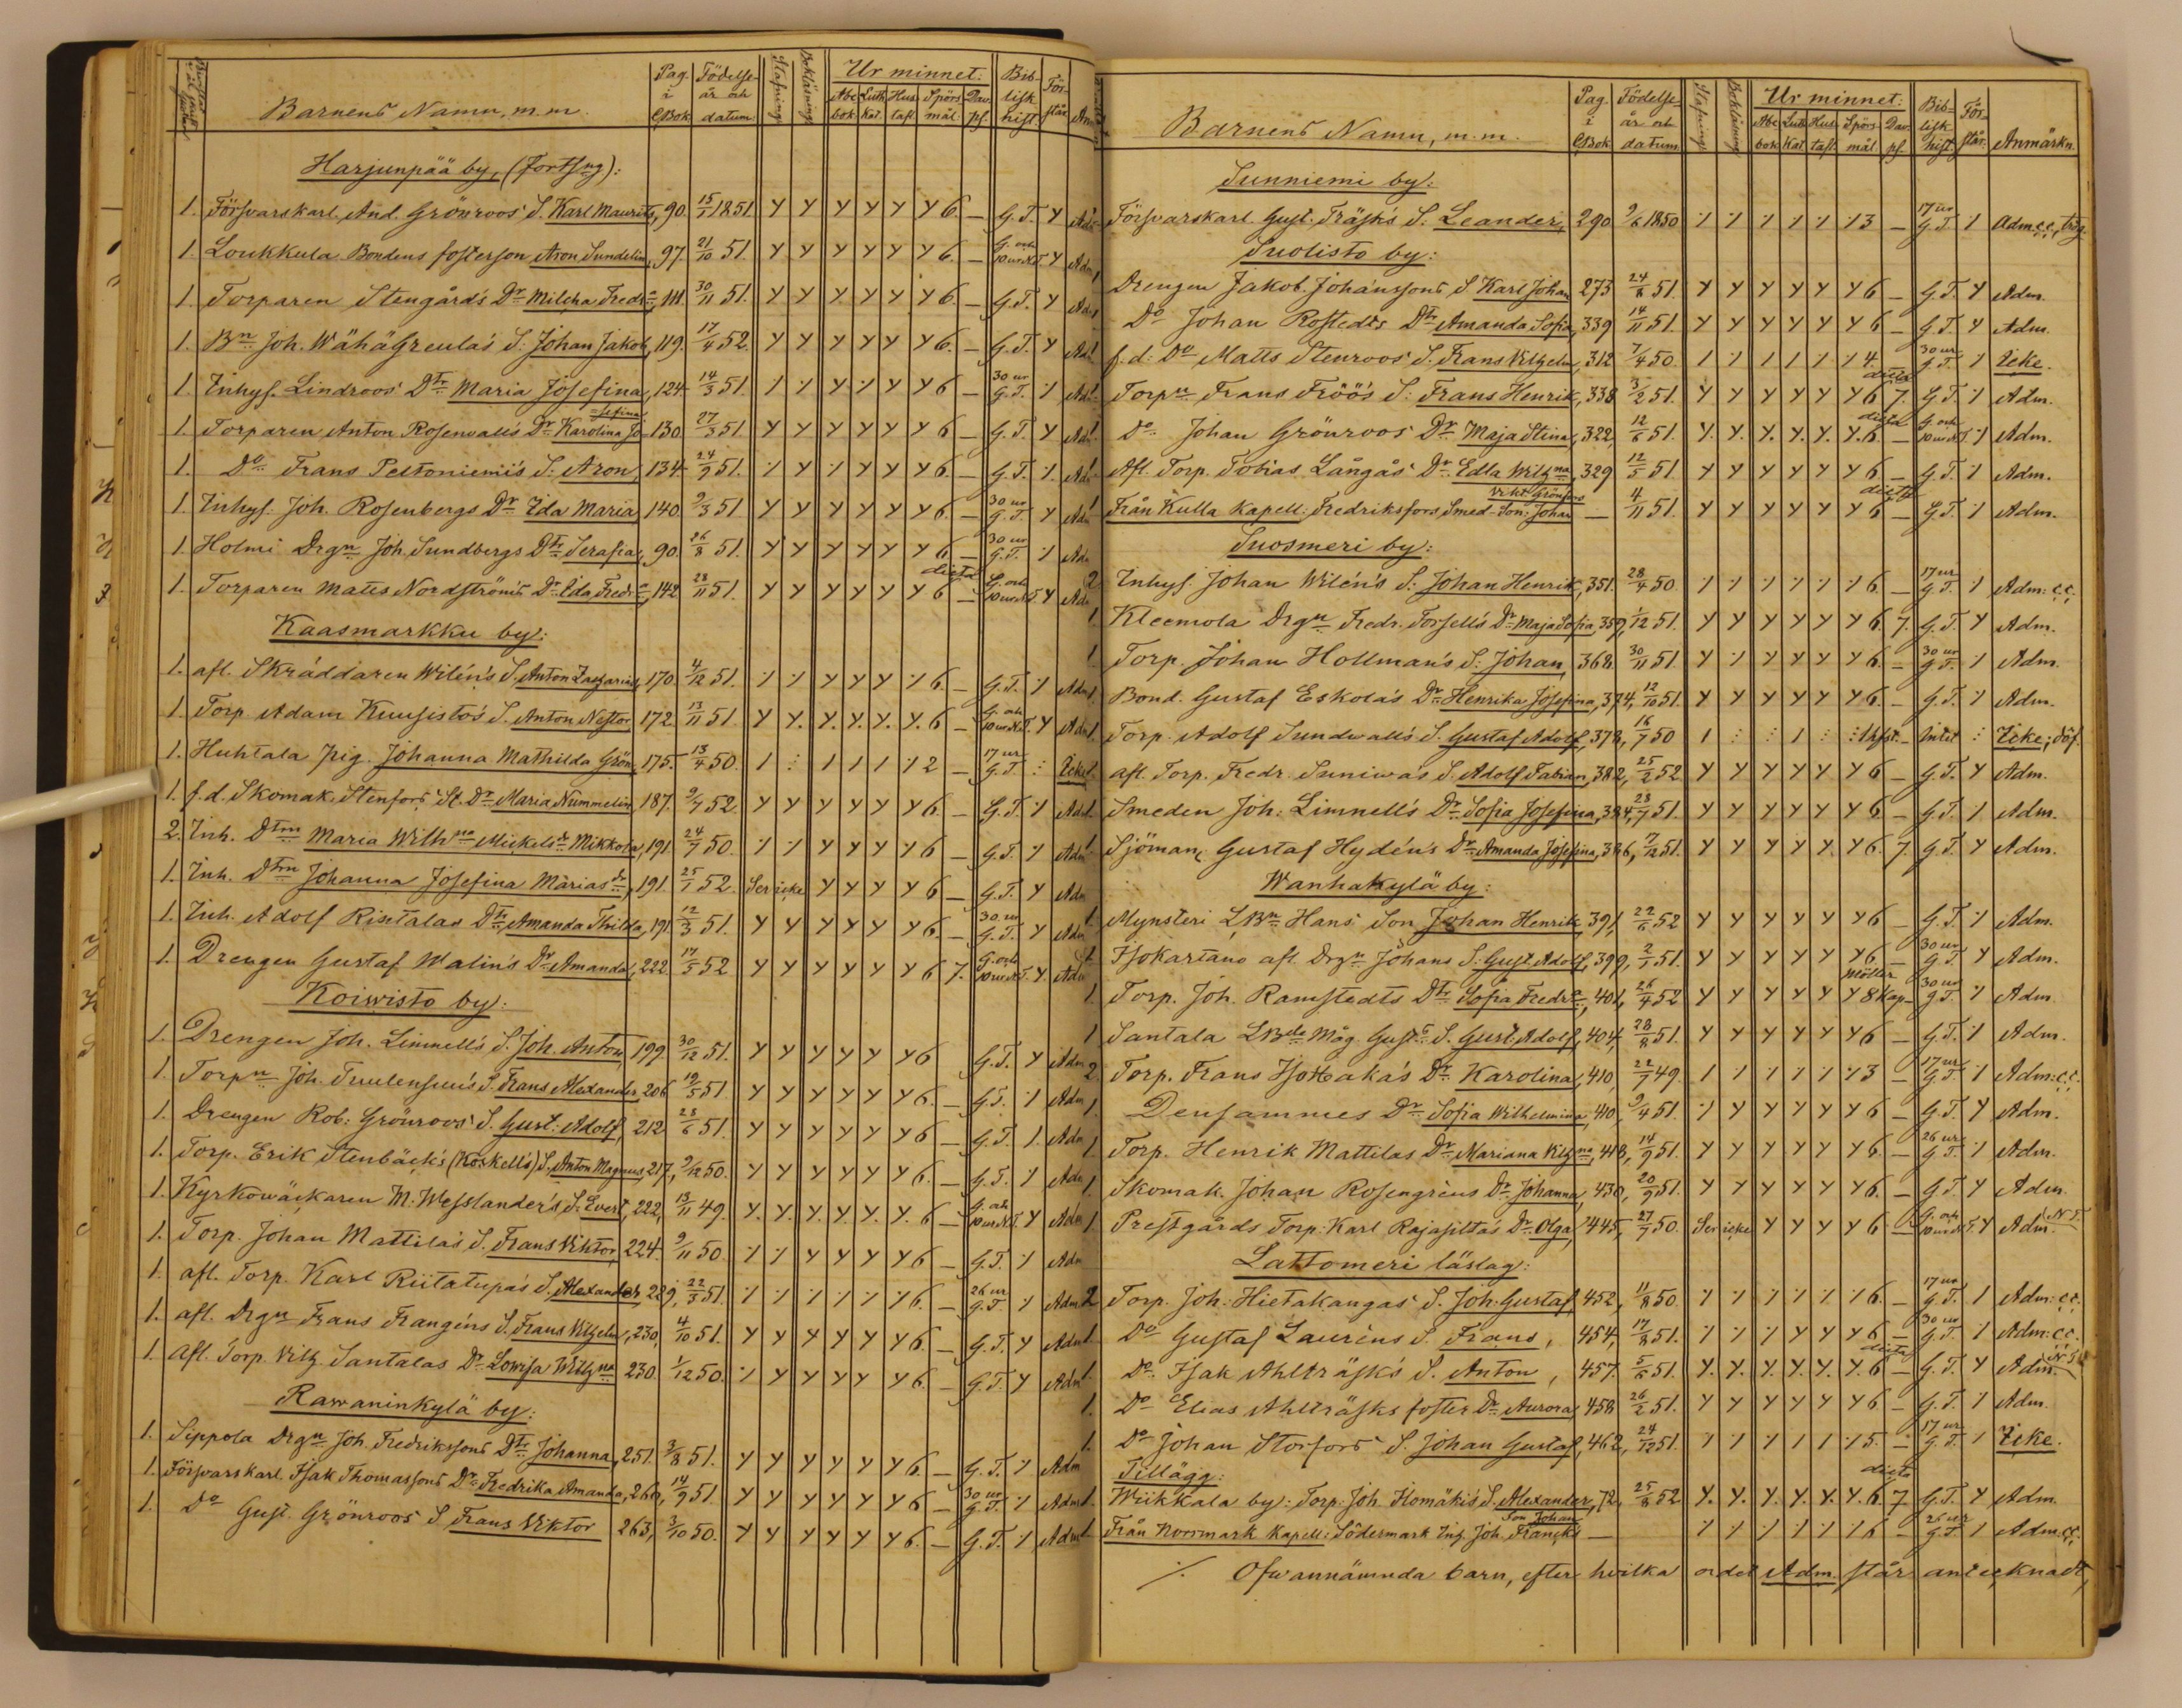 Barnens Namn, m.m. Pag. i C.Bok. Födelse år och datum Stafning Bokläsning Ur minnet: Abc bok. Luth. Kat. Hus tafl. Spörs mål. Dav. ps. Biblisk hist. Förstår
Harjunpää by, (Fortsng):
1. Försvarskarl And. Grönroos' S. Karl Maurits, 90. 15/1 1851. Y Y Y Y Y Y 6. — G.T. Y
1. Loukkula Bondens fosterson Aron Sundelin, 97. 21/10 51. Y Y Y Y Y Y 6. — G. och 10 ur N.T. Y
1. Torparen Stengård's Dr Milcha Fredr., 111. 30/11 51. Y Y Y Y Y Y 6. — G.T. Y
1. Bn Joh. Wähägreula's S. Johan Jakob, 119. 17/4 52. Y Y Y Y Y Y 6. — G.T. Y
1. Inhys. Lindroos' Dtr Maria Josefina, 124. 14/3 51. 1 ⁒ Y ⁒ Y Y 6 — 30 ur G.T. ⁒
1. Torparen Anton Rosenvall's Dr Karolina Josefina 130. 27/3 51. Y Y Y Y Y Y 6 — G.T. Y
1. Do Frans Peltoniemi's S. Aron, 134. 24/9 51. ⁒ Y ⁒ Y Y Y 6. — G.T. ⁒
1. Inhys. Joh. Rosenbergs Dr Ida Maria, 140. 9/3 51 Y Y Y Y Y Y 6. — 30 ur G.T. Y
1. Holmi Drgn Joh. Sundbergs Dtr Serafia, 90. 26/8 51. Y Y Y Y Y Y 6 — 30 ur G.T. ⁒
1. Torparen Matts Nordström's Dr Ida Fredr., 142 28/11 51. Y Y Y Y Y Y 6 — G. och 10 ur N.T. Y
Kaasmarkku by:
1. afl. Skräddaren Wilén's S. Anton Zacharias, 170. 4/12 51. ⁒ ⁒ Y Y Y ⁒ 6. — G.T. ⁒ Adm.
1. Torp. Adam Kuusisto's S. Anton Nestor, 172. 13/11 51. Y Y. Y. Y. Y. Y. 6 — G. och 10 ur N.T. Y Adm
1. Huhtala pig. Johanna Mathilda Grön, 175. 13/4 50. 1 : 1 1 1 ⁒ 2 — 17 ur G.T. : Icke
1. f.d. Skomak. Stenfors' St. Dr Maria Nummelin, 187. 9/7 52. Y Y Y Y Y Y 6. — G.T. ⁒
2. Inh. Dtrn Maria Wilhna Mickelsdr Mikkola, 191. 24/7 50. ⁒ ⁒ Y Y Y ⁒ 6 — G.T. ⁒ Adm
1. Inh. Dtrn Johanna Josefina Mariasdr, 191. 25/1 52. Ser icke Y Y Y Y 6 — G.T. Y Adm
1. Inh. Adolf Ristalas Dtr Amanda Thilda, 191. 12/3 51. Y Y Y Y Y Y 6. — 30 ur G.T. Y Adm
1. Drengen Gustaf Walin's Dr Amanda, 222. 17/5 52 Y Y Y Y Y Y 6 7. G. och 10 ur N.T. Y. Adm
Koiwisto by:
1. Drengen Joh. Limnell's S. Joh. Anton, 199 30/12 51. Y Y Y Y Y Y 6 G.T. Y Adm
1. Torpn Joh. Tuulensuu's S. Frans Alexander, 206 19/5 51 Y Y Y Y Y Y 6. — G.T. ⁒ Adm
1. Drengen Rob. Grönroos' S. Gust. Adolf, 212 28/6 51. Y Y Y Y Y Y 6 — G.T. 1. Adm
1. Torp. Erik Stenbäck's (Koskell's) S. Anton Magnus, 217, 9/12 50. Y Y Y Y Y Y 6. — G.T. ⁒ Adm
1. Kyrkowäckaren M. Wesslander's S. Evert, 222, 13/11 49. Y. Y. Y. Y. Y. Y. 6 — G. och 10 ur N.T. Y Adm
1. Torp. Johan Mattila's S. Frans Viktor, 224. 9/11 50. ⁒ ⁒ Y Y Y Y 6 — G.T. ⁒ Adm
1. afl. Torp. Karl Riitatupa's S. Alexander, 229, 22/3 51. ⁒ ⁒ ⁒ ⁒ ⁒ ⁒ 6. — 26 ur G.T. ⁒ Adm
1. afl. Drgn Frans Frangén's S. Frans Vilhelm, 230, 4/10 51. Y Y Y Y Y Y 6. — G.T. Y Adm
1. Afl. Torp. Vilh. Santalas Dr Lowisa Wilhna 230. 1/12 50. ⁒ Y Y Y Y Y 6. — G.T. Y Adm
Rawaninkylä by:
1. Sippola Drgn Joh. Fredrikssons Dtr Johanna, 251. 3/8 51. Y Y Y Y Y Y 6. — G.T. ⁒ Adm
1. Försvarskarl Isak Thomassons Dr Fredrika Amanda, 260, 14/9 51. Y Y Y Y Y Y 6 — 30 ur G.T. ⁒ Adm
1. Do Gust. Grönroos' S. Frans Viktor 263, 3/10 50. Y Y Y Y Y Y 6. — G.T. ⁒ Adm
Barnens Namn, m.m. Pag. i C.Bok. Födelse år och datum. Stafning Bokläsning Ur minnet: Abc bok. Luth. Kat. Hus tafl. Spörs mål. Dav. ps. Biblisk hist. Förstår. Anmärkn.
Sunniemi by:
Försvarskarl Gust. Träsk's S. Leander, 290 9/6 1850 ⁒ ⁒ ⁒ ⁒ ⁒ ⁒ 3 — 17 ur G.T. ⁒ Adm c.c. trög.
Suolisto by:
1 Drengen Jakob Johanssons S. Karl Johan 273 24/8 51. Y Y Y Y Y Y 6 — G.T. Y Adm.
1 Do Johan Rostedts Dtr Amanda Sofia, 339 14/11 51. Y Y Y Y Y Y 6 — G.T. Y Adm.
1 f.d. Do Matts Stenroos' S. Frans Vilhelm, 312 7/4 50. 1 ⁒ 1 1 ⁒ ⁒ 4. 30 ur G.T. ⁒ Icke.
1. Torpn Frans Fröö's S. Frans Henrik, 338 3/2 51. Y Y Y Y Y Y 6 7. G.T. ⁒ Adm.
1. Do Johan Grönroos' Dr Maja Stina, 322, 12/6 51. Y. Y. Y. Y. Y. Y. 6. — G. och 10 ur N.T. ⁒ Adm.
1 Afl. Torp. Tobias Långås' Dr Edla Wilhna, 329 12/5 51 Y Y Y Y Y Y 6 — G.T. ⁒ Adm.
1 Från Kulla Kapell: Fredriksfors Smed-Son: Johan Vikt. Grönfors — 4/11 51. Y Y Y Y Y Y 6 — G.T. ⁒ Adm.
Suosmeri by:
2 Inhys. Johan Wilén's S. Johan Henrik, 351. 28/4 50. ⁒ ⁒ ⁒ ⁒ ⁒ ⁒ 6. — 17 ur G.T. ⁒ Adm: c.c.
1. Kleemola Drgn Fredr. Forsells Dr Maja Sofia, 359, 1/12 51. Y Y Y Y Y Y 6 7. G.T. Y Adm.
1. Torp. Johan Hollman's S. Johan, 368. 30/11 51 Y ⁒ Y Y Y Y 6. — 30 ur G.T. ⁒ Adm.
1. Bond. Gustaf Eskola's Dr Henrika Josefina, 374, 12/10 51. Y Y Y Y Y Y 6. — G.T. ⁒ Adm.
1. Torp. Adolf Sundwall's S. Gustaf Adolf, 378, 16/7 50 1 : : 1 : : — Intet : Icke, döf.
1. afl. Torp. Fredr. Suniwa's S. Adolf Fabian, 382, 25/2 52 Y Y Y Y Y Y 6 — G.T. Y Adm.
1. Smeden Joh. Limnell's Dr Sofia Josefina, 384, 28/7 51. Y Y Y Y Y Y 6 — G.T. ⁒ Adm.
1. Sjöman, Gustaf Hydén's Dr Amanda Josefina, 386, 7/12 51. Y Y Y Y Y. Y 6. 7. G.T. Y Adm.
Wanhakylä by:
1. Mynsteri LBn Hans' Son Johan Henrik, 391, 22/6 52 Y Y Y Y Y Y 6 — G.T. ⁒ Adm.
Isokartano afl. Drgn Johans S. Gust. Adolf, 399, 2/1 51. Y Y Y Y Y Y 6 — 30 ur G.T. Y Adm.
1. Torp. Joh. Ramstedts Dtr Sofia Fredr., 401, 26/4 52 Y Y Y Y Y Y möller 8 kap. 30 ur G.T. ⁒ Adm.
1 Santala LBde Måg Gusts S. Gust. Adolf, 404, 28/8 51. Y Y Y Y Y Y 6 — G.T. ⁒ Adm.
2. Torp. Frans Isohaka's Dr Karolina, 410, 22/7 49. 1 1 ⁒ ⁒ ⁒ ⁒ 3 — 17 ur G.T. ⁒ Adm: c.c.
1. Densammes Dr Sofia Wilhelmina, 410, 9/4 51. ⁒ Y Y Y Y Y 6 — G.T. Y Adm.
1 Torp. Henrik Mattilas Dr Mariana Vilhna, 418, 14/9 51. Y Y Y Y Y Y 6. — 26 ur G.T. ⁒ Adm.
1. Skomak. Johan Rosengréns Dr Johanna, 430, 20/9 51. Y Y Y Y Y Y 6. — G.T. Y Adm.
1. Prestgårds Torp. Karl Rajasilta's Dr Olga, 445, 27/7 50. Ser icke Y Y Y Y 6 — G. och 10 ur N.T. Y Adm. N.T.
Lattomeri läslag:
2 Torp. Joh. Hietakangas' S. Joh. Gustaf, 452, 11/8 50. ⁒ ⁒ ⁒ ⁒ ⁒ ⁒ 6. — 17 ur G.T. ⁒ Adm: c.c.
1. Do Gustaf Lauréns S. Frans, 454, 17/8 51. ⁒ ⁒ ⁒ Y Y Y 6 — 30 ur G.T. ⁒ Adm: c.c.
1. Do Isak Ahlträsk's S. Anton, 457. 5/6 51. Y. Y. Y. Y. Y. Y. 6 — G.T. Y Adm.
1. Do Elias Ahlträsks foster Dr Aurora, 458 26/2 51. Y Y Y Y Y Y 6 — G.T. ⁒ Adm.
1. Do Johan Storfors' S. Johan Gustaf, 462, 24/12 51. ⁒ ⁒ ⁒ 1 1 ⁒ 5. — 17 ur G.T. ⁒ Icke.
Tillägg:
1. Wiikkala by: Torp. Joh. Ilomäki's S. Alexander, 72, 25/8 52 Y. Y. Y. Y. Y. Y. 6. 7 G.T. Y Adm.
1 Från Norrmark Kapell: Södermark Inh. Joh. Francks Son Johan — ⁒ ⁒ ⁒ ⁒ ⁒ ⁒ 6 — 26 ur G.T. ⁒ Adm. c.c.
⁒ Ofwannämnda barn, efter hvilka ordet Adm. står antecknadt,